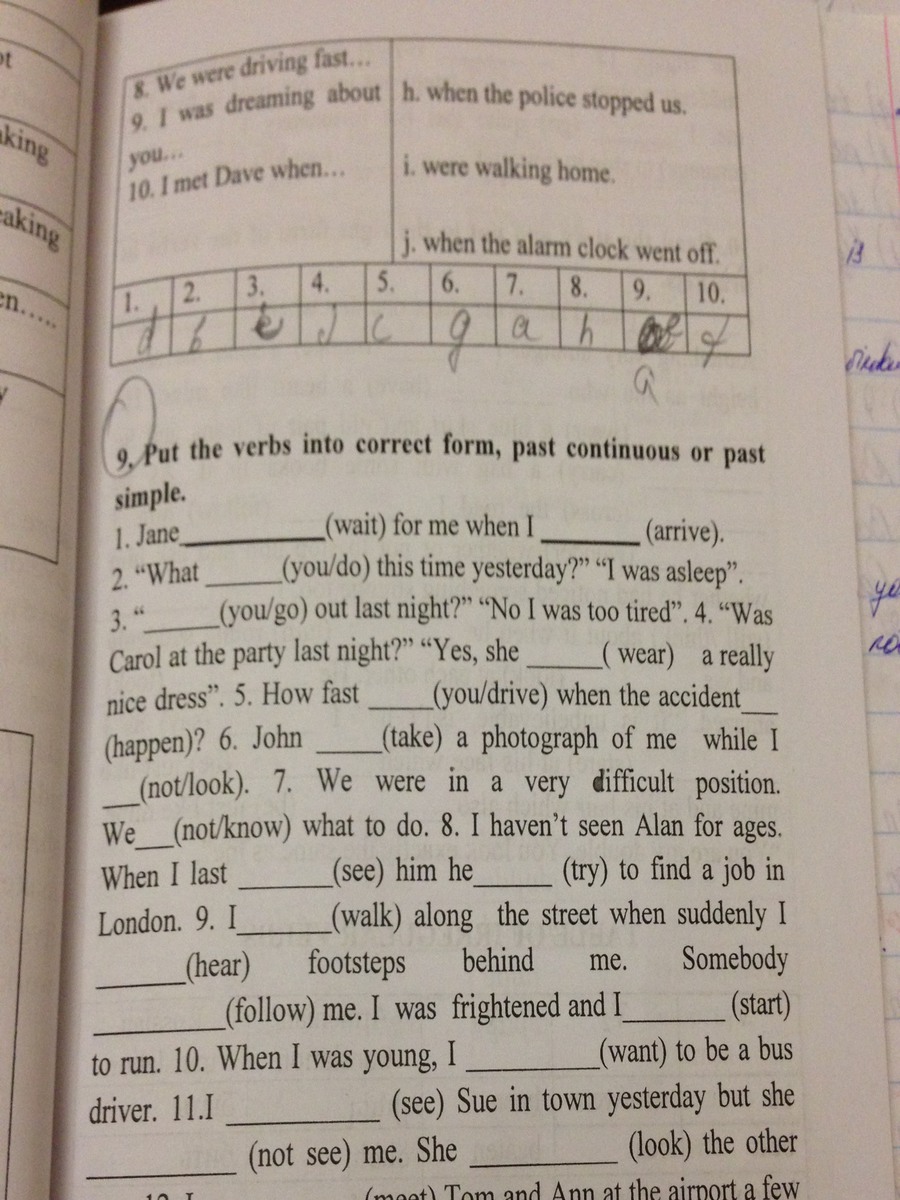 ot
aking
eaking
en.....
8. We were driving fast…
9. I was dreaming about
you…
10. I met Dave when…
h. when the police stopped us.
i. were walking home.
j. when the alarm clock went off.
1. 2. 3. 4. 5. 6. 7. 8. 9. 10.
d b e j c g a h f
is
9. Put the verbs into correct form, past continuous or past
simple.
1. Jane__________(wait) for me when I _______ (arrive).
2. “What ______(you/do) this time yesterday?” “I was asleep”.
3. “______(you/go) out last night?” “No I was too tired”. 4. “Was
Carol at the party last night?” “Yes, she ______( wear) a really
nice dress”. 5. How fast _____(you/drive) when the accident___
(happen)? 6. John _____(take) a photograph of me while I
___(not/look). 7. We were in a very difficult position.
We___(not/know) what to do. 8. I haven’t seen Alan for ages.
When I last _______(see) him he______ (try) to find a job in
London. 9. I_______(walk) along the street when suddenly I
_______(hear) footsteps behind me. Somebody
__________(follow) me. I was frightened and I________ (start)
to run. 10. When I was young, I __________(want) to be a bus
driver. 11.I ____________ (see) Sue in town yesterday but she
___________ (not see) me. She ___________ (look) the other
12. I (meet) Tom and Ann at the airport a few